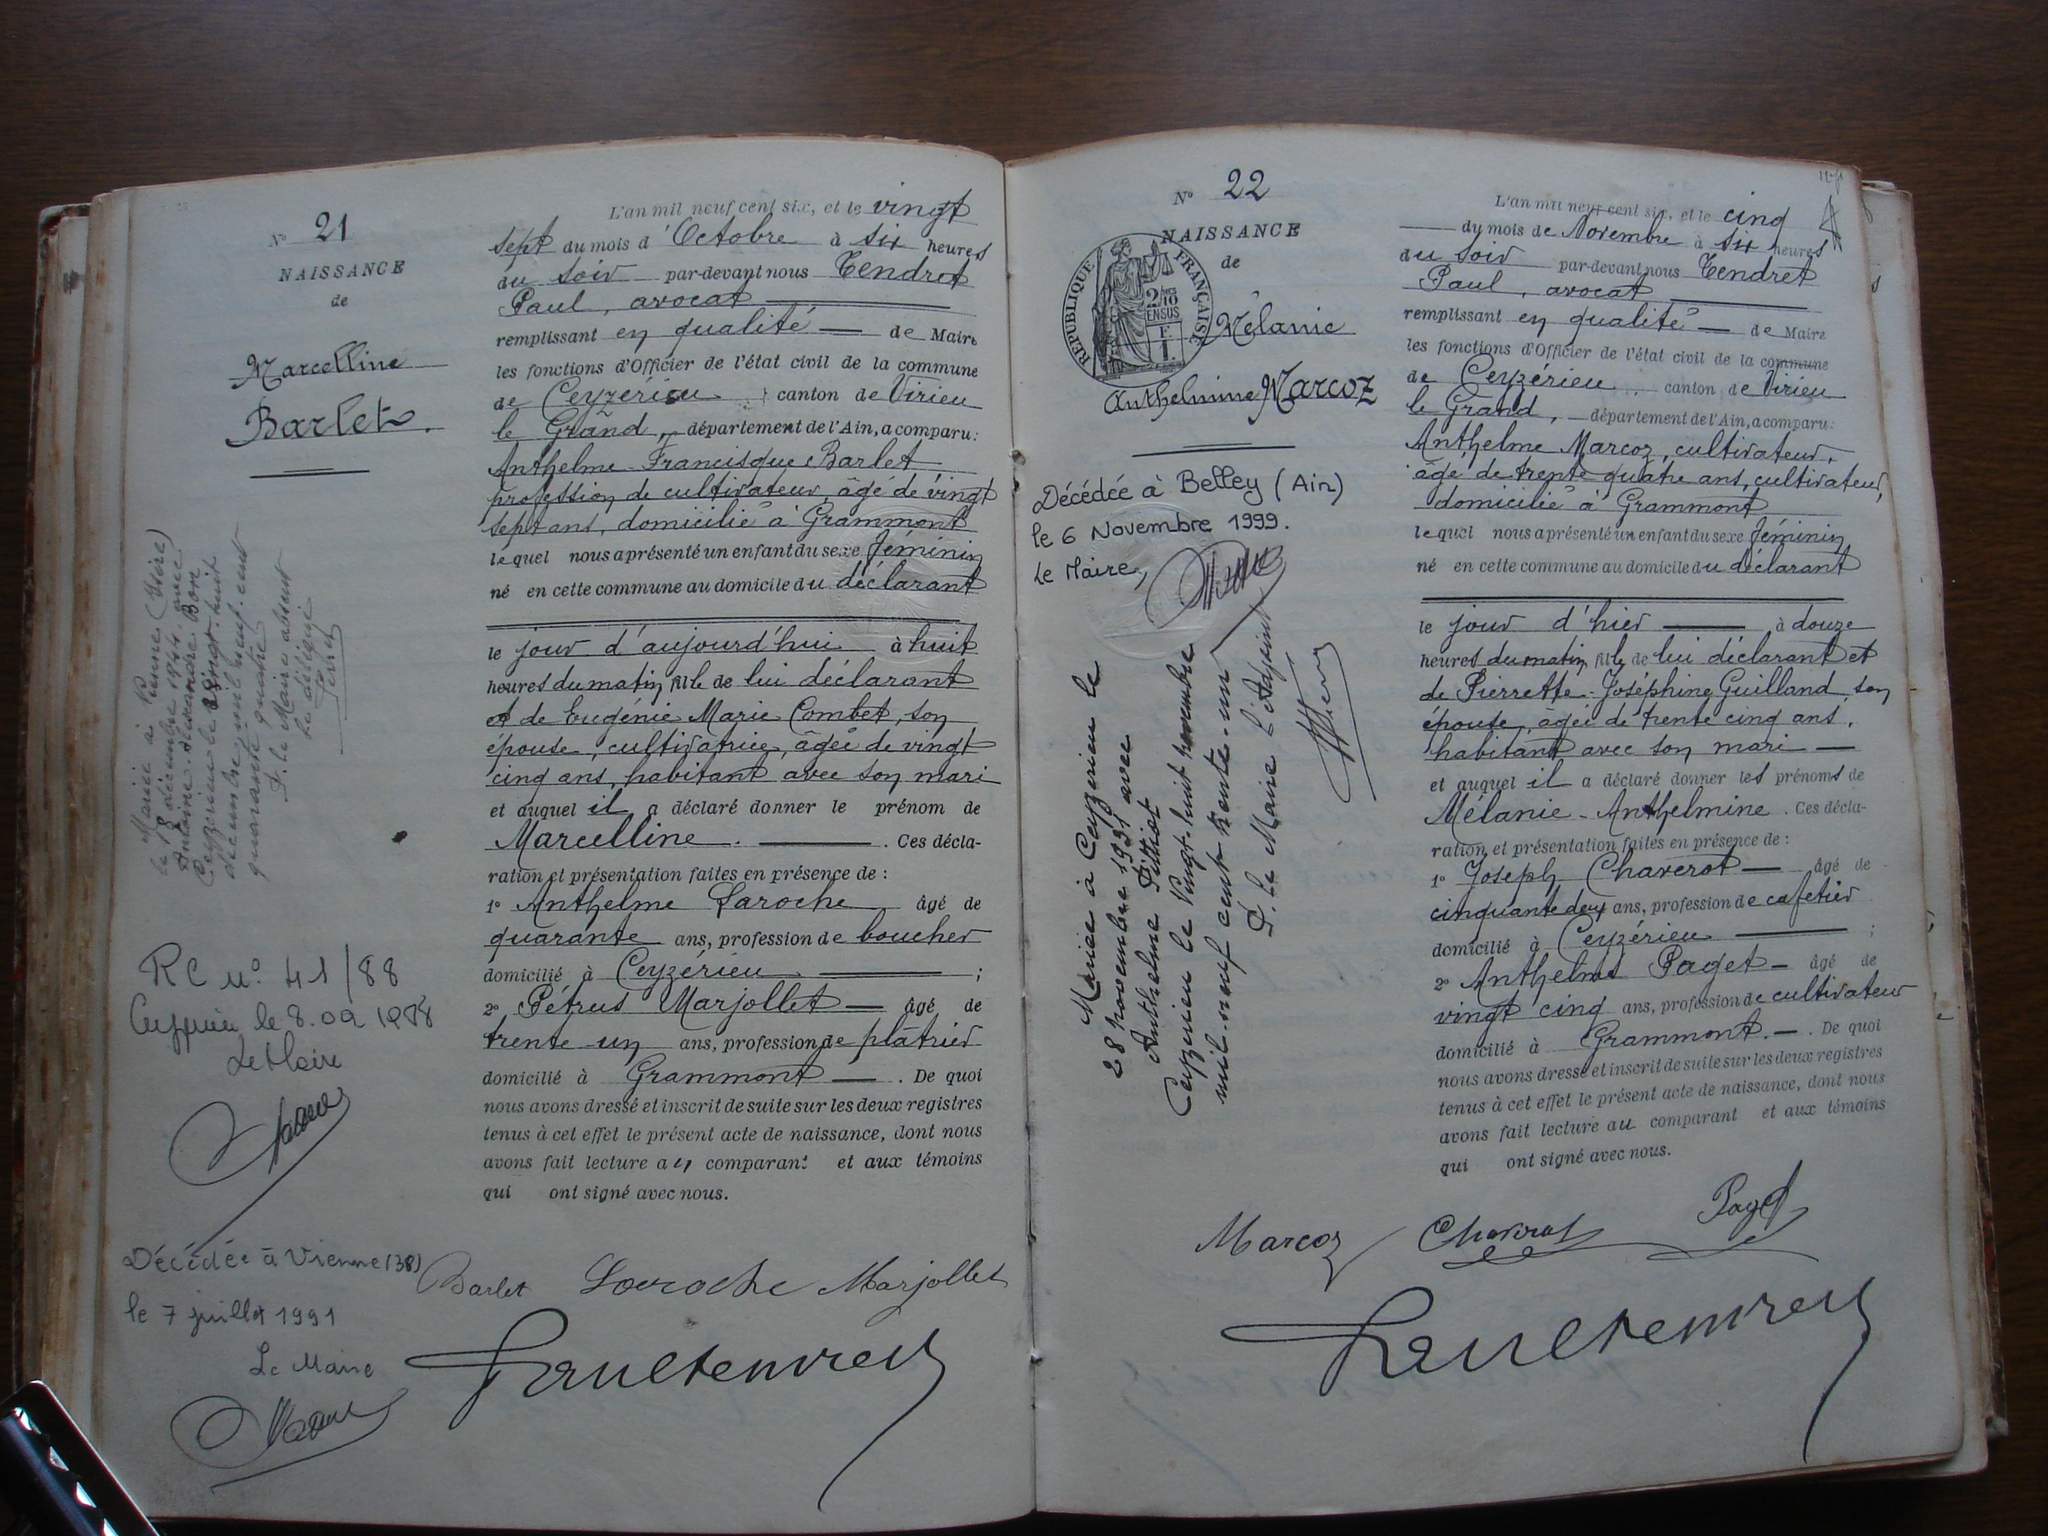 Nº 21
NAISSANCE
de
Marcelline
Barlet.
Mariée à Vienne (Isère)
le 28 décembre 1944 avec
Antoine Alexandre Bon
Ceyzérieu le vingt-huit
décembre mil neuf cent
quarante quatre
P. le Maire absent
Le délégué
RC nº 41/88
Ceyzérieu le 8.09 1988
Le Maire
Décédée à Vienne (38)
le 7 juillet 1991
Le Maire
L'an mil neuf cent six, et le vingt
sept du mois d'Octobre à six heures
du soir par-devant nous Tendret
Paul, avocat
remplissant en qualité de Maire
les fonctions d'Officier de l'état civil de la commune
de Ceyzérieu canton de Virieu
le Grand, département de l'Ain, a comparu:
Anthelme Francisque Barlet
profession de cultivateur, âgé de vingt
sept ans, domicilié à Grammont
lequel nous a présenté un enfant du sexe féminin
né en cette commune au domicile du déclarant
le jour d'aujourd'hui à huit
heures du matin, fille de lui déclarant
et de Eugénie Marie Combet, son
épouse, cultivatrice, âgée de vingt
cinq ans, habitant avec son mari
et auquel il a déclaré donner le prénom de
Marcelline. Ces décla-
ration et présentation faites en présence de :
1º Anthelme Laroche âgé de
quarante ans, profession de boucher
domicilié à Ceyzérieu ;
2º Pétrus Marjollet — âgé de
trente-un ans, profession de plâtrier
domicilié à Grammont — . De quoi
nous avons dressé et inscrit de suite sur les deux registres
tenus à cet effet le présent acte de naissance, dont nous
avons fait lecture au comparant et aux témoins
qui ont signé avec nous.
Barlet Laroche Marjollet
Nº 22
NAISSANCE
de
RÉPUBLIQUE FRANÇAISE
2/10
EN SUS
Mélanie
Anthelmine Marcoz
Décédée à Belley (Ain)
le 6 Novembre 1999.
Le Maire,
Mariée à Ceyzérieu le
28 novembre 1931 avec
Anthelme
Ceyzérieu le vingt-huit novembre
mil-neuf cent trente-un
P. le Maire l'Adjoint
L'an mil neuf cent six, et le cinq
du mois de Novembre à six heures
du soir par-devant nous Tendret
Paul, avocat
remplissant en qualité — de Maire
les fonctions d'Officier de l'état civil de la commune
de Ceyzérieu canton de Virieu
le Grand, département de l'Ain, a comparu:
Anthelme Marcoz, cultivateur,
âgé de trente quatre ans, cultivateur,
domicilié à Grammont
lequel nous a présenté un enfant du sexe féminin
né en cette commune au domicile du déclarant
le jour d'hier — à douze
heures du matin, fille de lui déclarant et
de Pierrette-Joséphine Guilland, son
épouse, âgée de trente cinq ans,
habitant avec son mari —
et auquel il a déclaré donner les prénoms de
Mélanie-Anthelmine. Ces décla-
ration et présentation faites en présence de :
1º Joseph Chaverot — âgé de
cinquante deux ans, profession de cafetier
domicilié à Ceyzérieu ;
2º Anthelme Paget — âgé de
vingt cinq ans, profession de cultivateur
domicilié à Grammont. — . De quoi
nous avons dressé et inscrit de suite sur les deux registres
tenus à cet effet le présent acte de naissance, dont nous
avons fait lecture au comparant et aux témoins
qui ont signé avec nous.
Marcoz Chaverot Paget